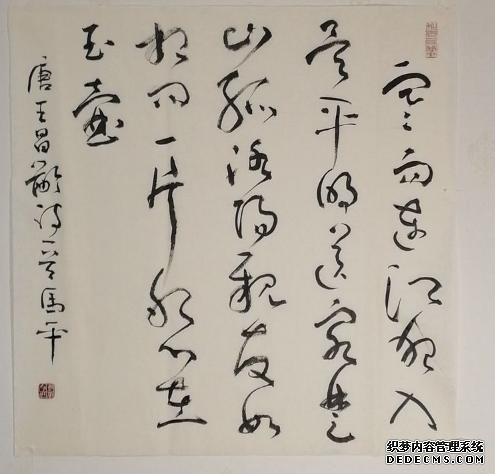 寒雨連江夜入
吳平明送客楚
山孤洛陽親友如
相問一片冰心在
玉壺
唐王昌齡詩一首馬平
织梦内容管理系统
DEDECMS.COM